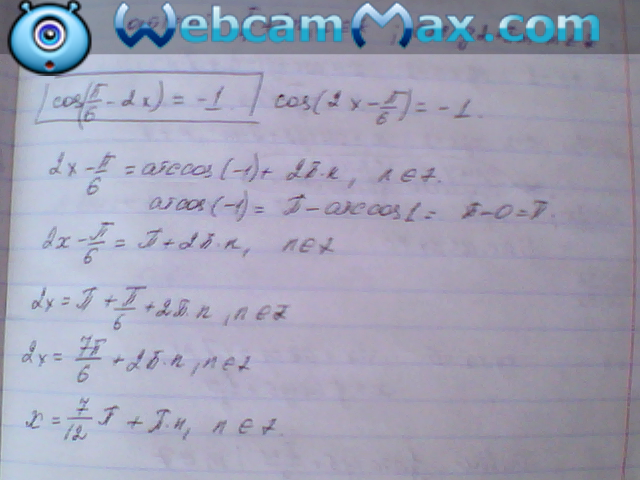 WebcamMax.com
cos(π/6 - 2x) = -1   cos(2x - π/6) = -1.
2x - π/6 = arccos(-1) + 2π·n, n∈z.
arcos(-1) = π - arccos1 = π - 0 = π.
2x - π/6 = π + 2π·n, n∈z
2x = π + π/6 + 2π·n, n∈z
2x = 7π/6 + 2π·n, n∈z
x = 7/12 π + π·n, n∈z.